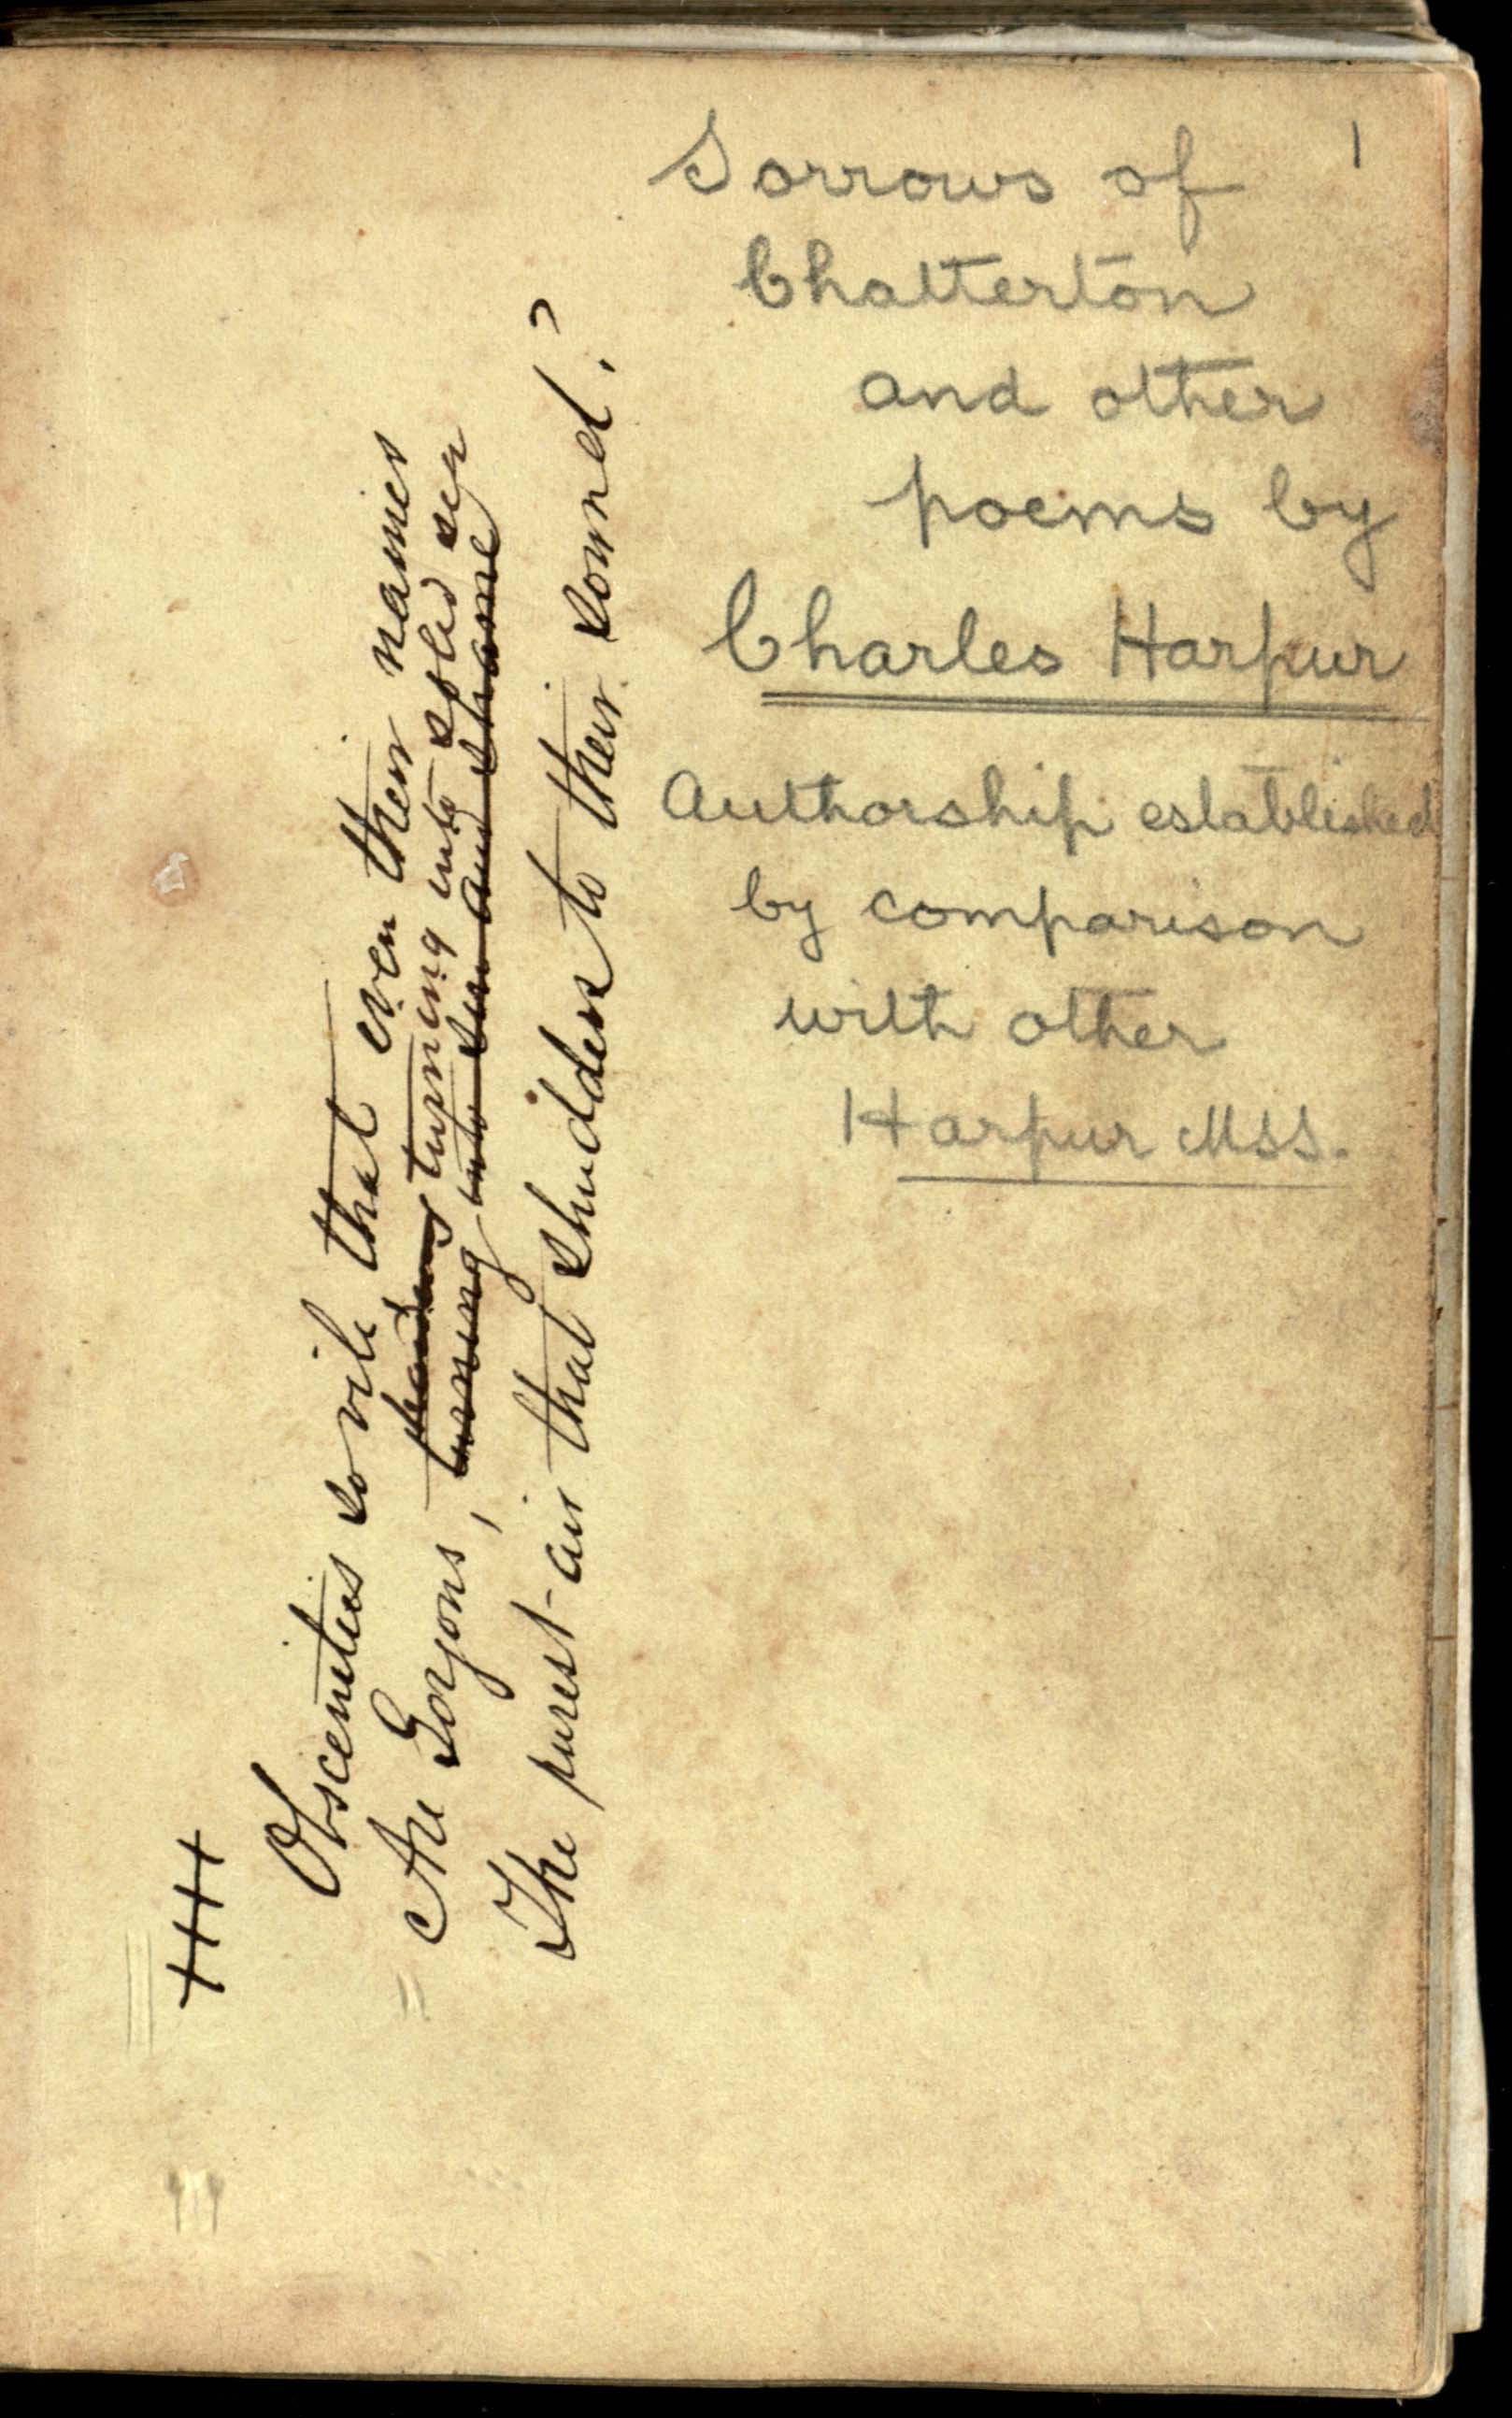 1
Sorrows of
Chatterton
and other
poems by
Charles Harpur
Authorship established
by comparison
with other
Harpur MSS.
Obscenities so vile that even their names
Are Gorgons, turning into solid sin
turning into sin and shame
The purest air that shudders to their sound?